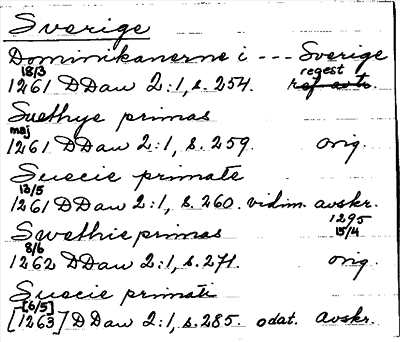 Sverige
Dominikanerne i --- Sverige
18/3 regest
1261 DDan 2:1, s. 254.
Suethye primas
maj
1261 DDan 2:1, s. 259. orig.
Suecie primate
13/5
1261 DDan 2:1, s. 260. vidim. avskr.
1295
Swethie primas 15/4
8/6
1262 DDan 2:1, s. 271. orig.
Suecie primati
[6/5]
[1263] DDan 2:1, s. 285. odat. avskr.